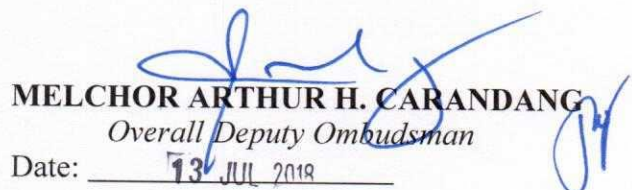 MELCHOR ARTHUR H. CARANDANG
Overall Deputy Ombudsman
Date: 13 JUL 2018